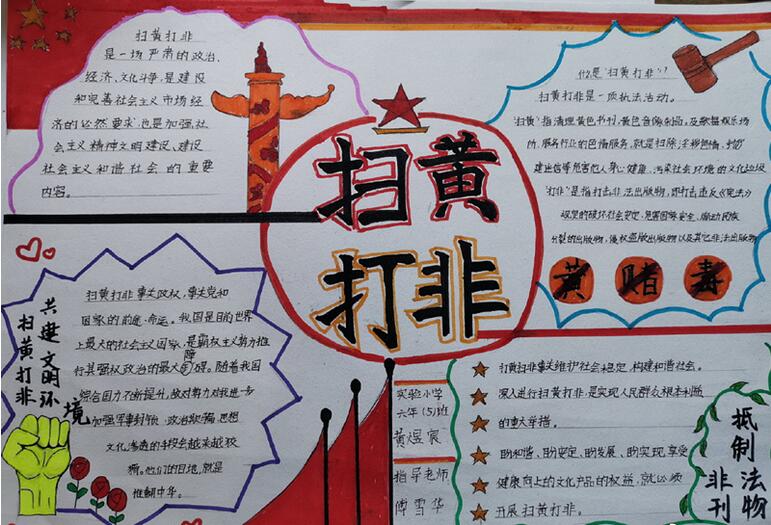 扫黄打非
是一场严肃的政治、
经济、文化斗争,是建设
和完善社会主义市场经
济的必然要求,也是加强社
会主义精神文明建设、建设
社会主义和谐社会的重要
内容。
扫黄
打非
什么是"扫黄打非"?
扫黄打非是一项执法活动。
"扫黄"指清理黄色书刊,黄色音像制品,及歌舞娱乐场
所,服务行业的色情服务,就是扫除淫秽色情、封
建迷信等危害他人身心健康、污染社会环境的文化垃圾
"打非"是指打击非法出版物,即打击违反《宪法》
规定的破坏社会安定,危害国家安全、煽动民族
分裂的出版物,侵权盗版出版物以及其它非法出版物
黄 赌 毒
共建文明环境
扫黄打非
扫黄打非事关政权,事关党和
国家的前途命运。我国是目前世界
上最大的社会主义国家,是霸权主义势力推
行其强权政治的最大障碍。随着我国
综合国力不断提升,敌对势力对我进一步
加强军事封锁,政治欺骗,思想
文化渗透的手段会越来越狡
猾。他们的目地,就是
推翻中华。
实验小学
六年(5)班
黄煜宸
指导老师
傅雪华
打黄扫非事关维护社会稳定,构建和谐社会。
深入进行扫黄打非,是实现人民群众根本利益
的重大举措。
盼和谐、盼安定、盼发展、盼实现,享受
健康向上的文化产品的权益,就必须
开展扫黄打非。
抵制法物
非刊